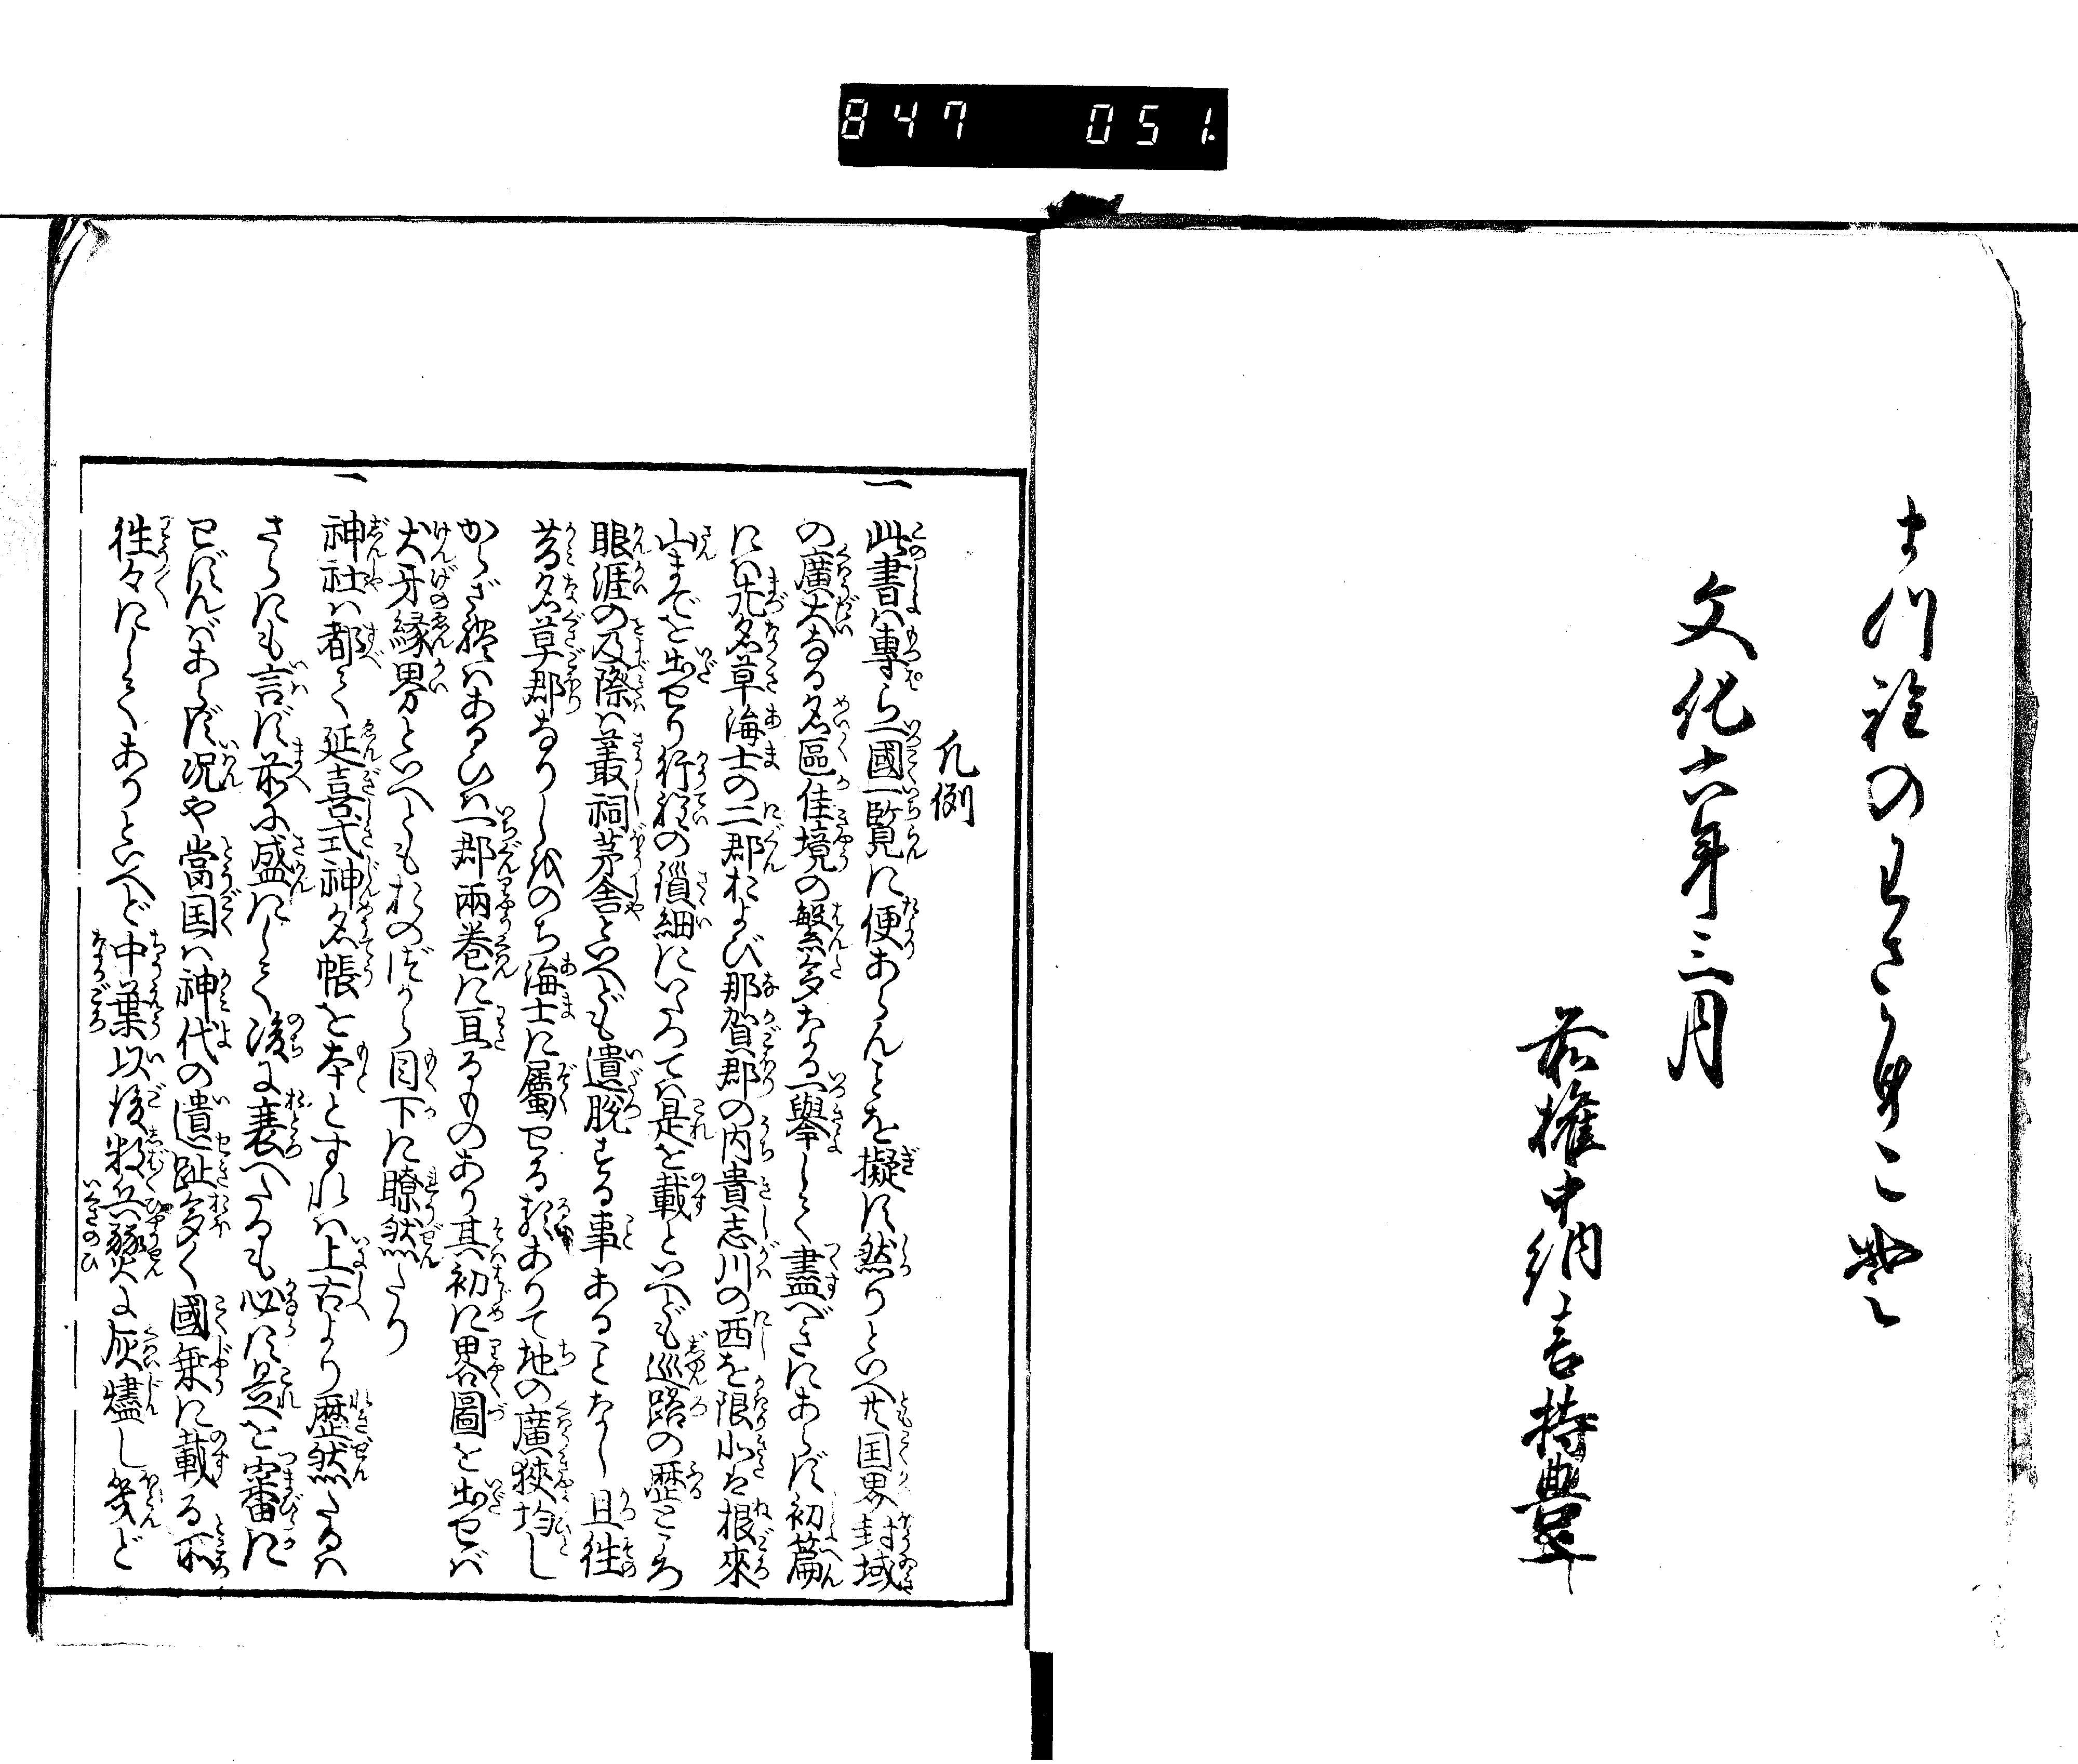 847 051
文化六年三月
前権中納言持豊
凡例
一 此書ハ專ら一國一覧に便あらんとを擬す然りといへ共国界封域
の廣大なる名區佳境の繁多なる一擧して盡べきにあらず初篇
にハ先名草海士の二郡および那賀郡の内貴志川の西を限北は根來
山までを出せり行程の瑣細にいたつてハ是を載といへども巡路の歴ところ
眼涯の及際ハ叢祠茅舎といへども遺脱する事あることなし且往
昔名草郡なりし後のち海士に屬せる類ありて地の廣狹均し
からざれハあるひハ一郡兩巻に亘るものあり其初に畧圖を出せバ
犬牙縁界といへともおのずから目下に瞭然たり
一 神社ハ都て延喜式神名帳を本とすれハ上古より歴然たるハ
さらにも言ず前に盛にして後に衰へたるも必ず是を審に
せずんバあらず况や當国ハ神代の遺趾多く國乗に載る所
徃々にしてありといへど中葉以後数兵燹火に灰燼し幾ど